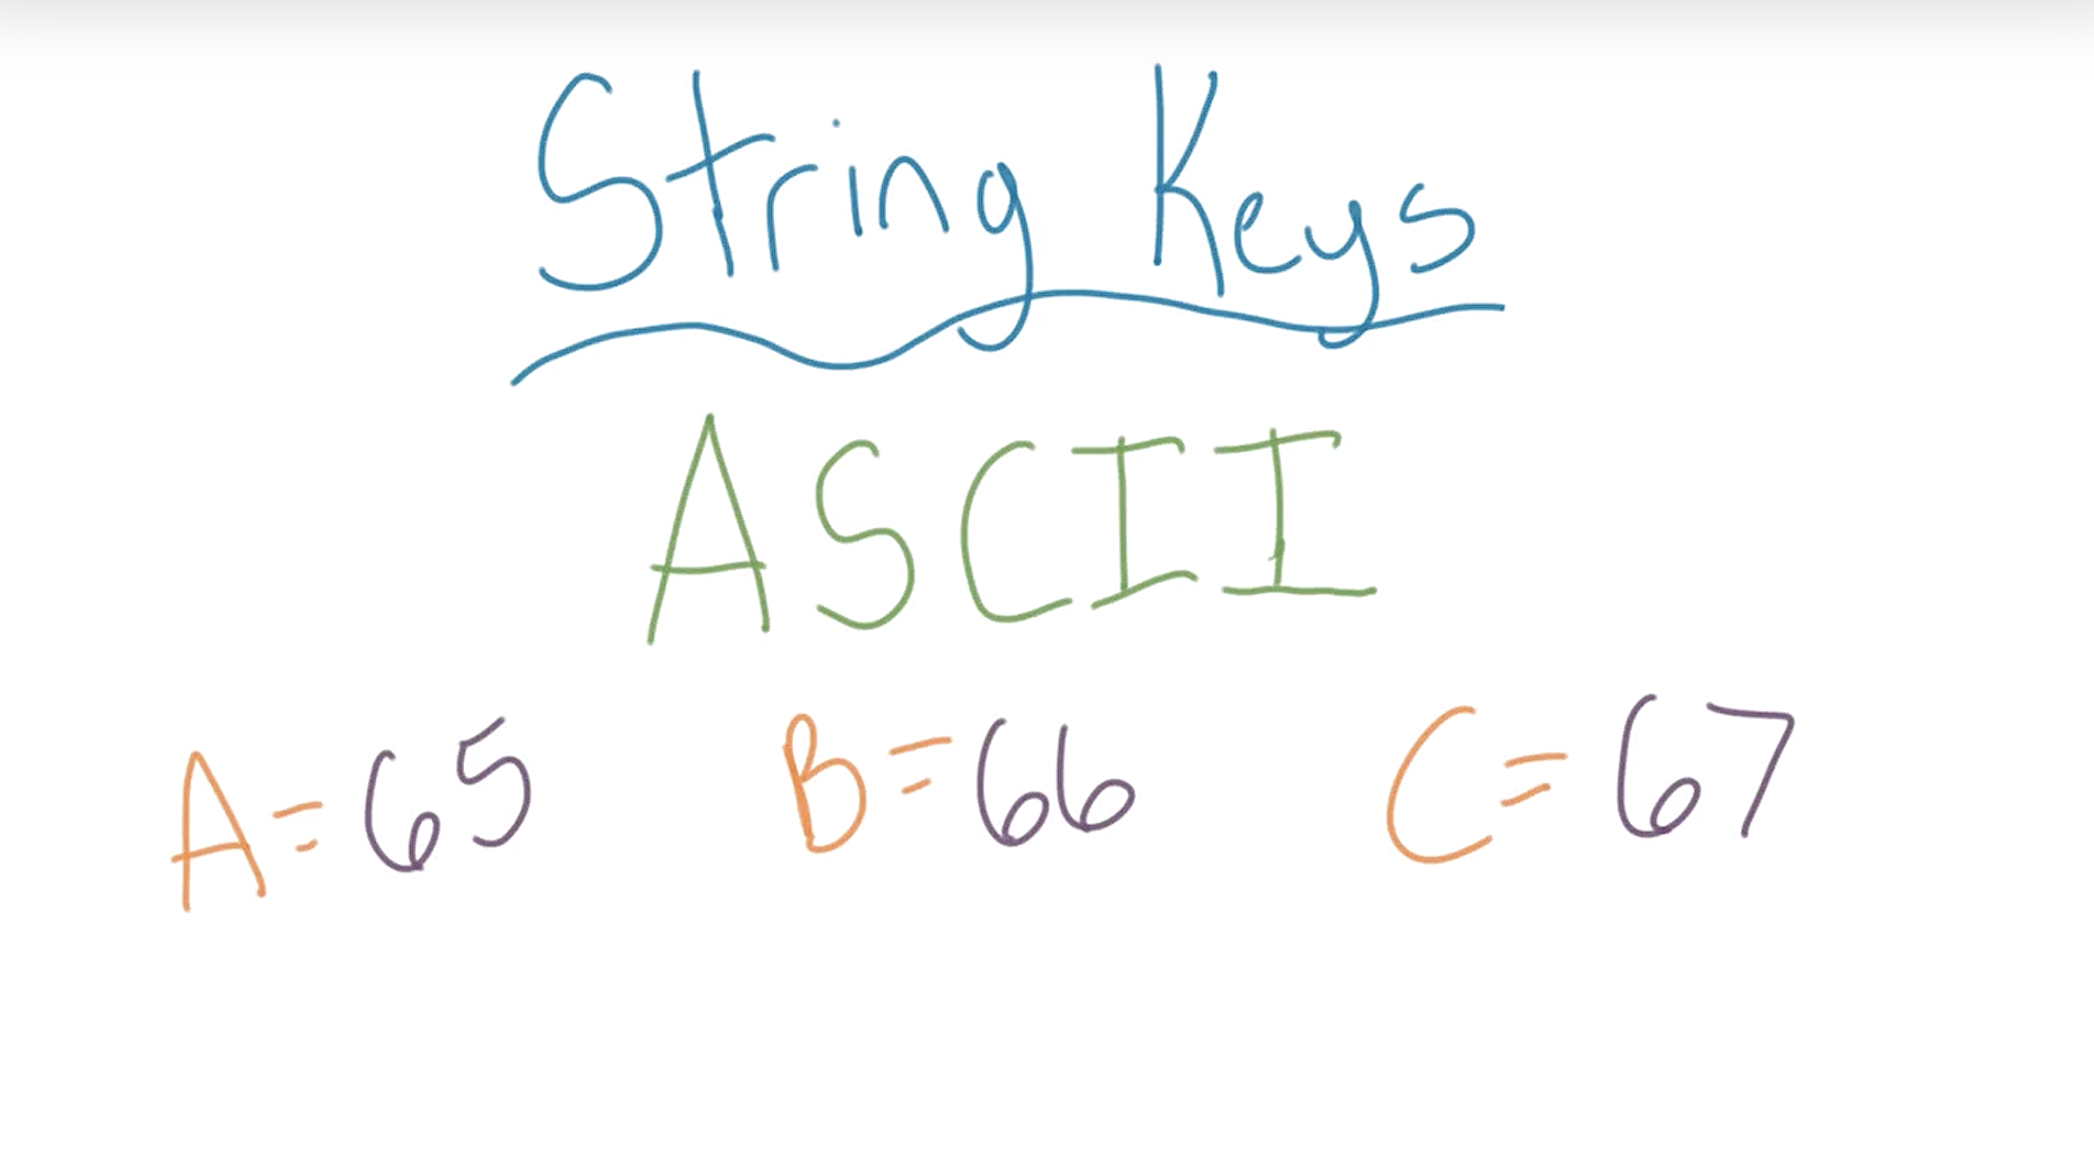 String Keys
ASCII
A=65 B=66 C=67